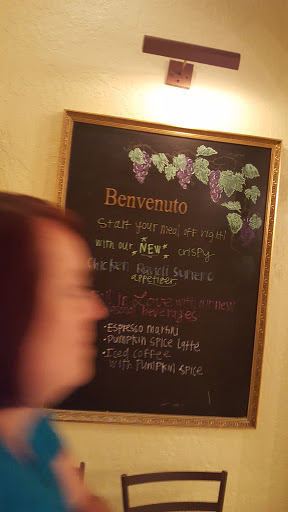 Benvenuto
Start your meal off right!
with our *NEW* crispy
Chicken Ravioli Supremo
appetizer
Fall In Love with our new
seasonal beverages
• Espresso martini
• Pumpkin spice latte
• Iced coffee
with Pumpkin spice